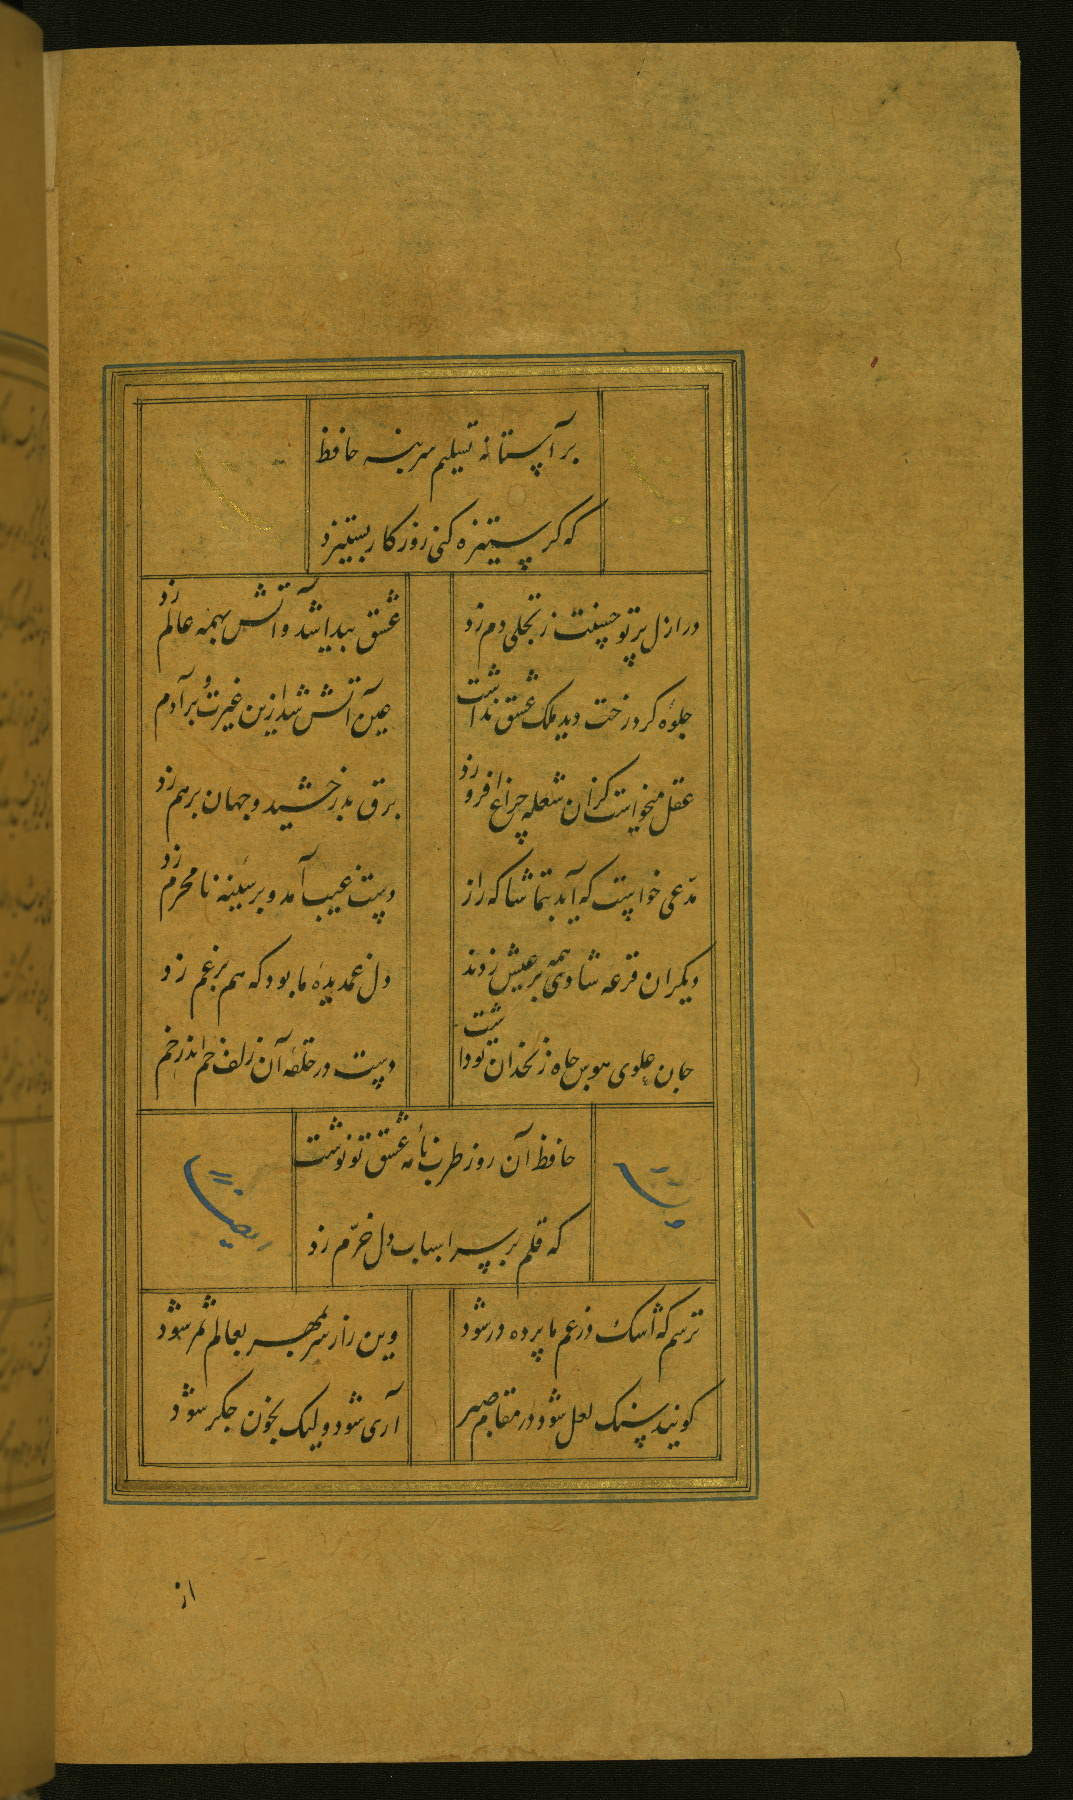 بر آستانه تسلیم سر بنه حافظ
که کر ستیزه کنی روزکار بستیزد
در ازل پرتو حسنت ز تجلی دم زد
عشق پیدا شد و آتش بهمه عالم زد
جلوهٔ کرد رخت دید ملک عشق نداشت
عین آتش شد ازین غیرت و بر آدم
عقل میخواست کزان شعله چراغ افروزد
برق بدرخشید و جهان برهم زد
مدّعی خواست که آید بتماشاکه راز
دست غیب آمد و بر سینهٔ نامحرم زد
دیکران قرعه شادی همه بر عیش زدند
دل غمدیدهٔ ما بود که هم بر غم زد
جان علوی هوس چاه زنخدان تو داشت
دست در حلقهٔ آن زلف خم اندر خم
حافظ آن روز طرب نامهٔ عشق تو نوشت
وله
ایضا
که قلم بر سر اسباب دل خرّم زد
ترسم که اشک در غم ما پرده در شود
وین راز سر بمهر بعالم ثمر شود
کویند سنک لعل شود در مقام صبر
آری شود ولیک بخون جکر شود
از